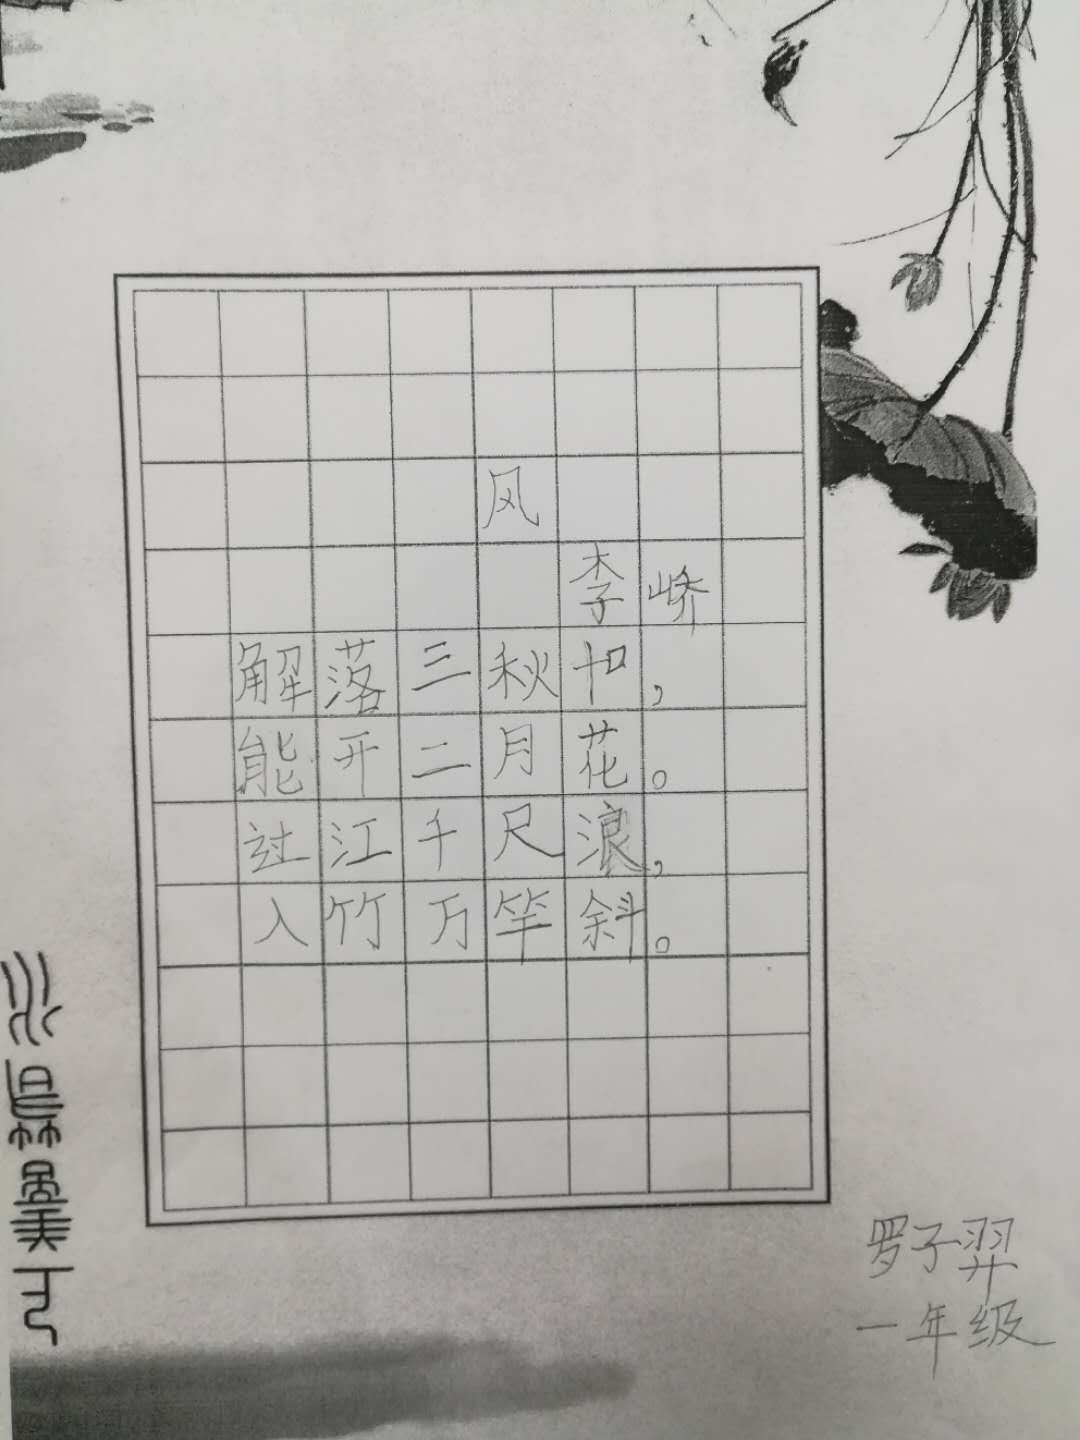 风
李峤
解落三秋叶，
能开二月花。
过江千尺浪，
入竹万竿斜。
罗子羿
一年级